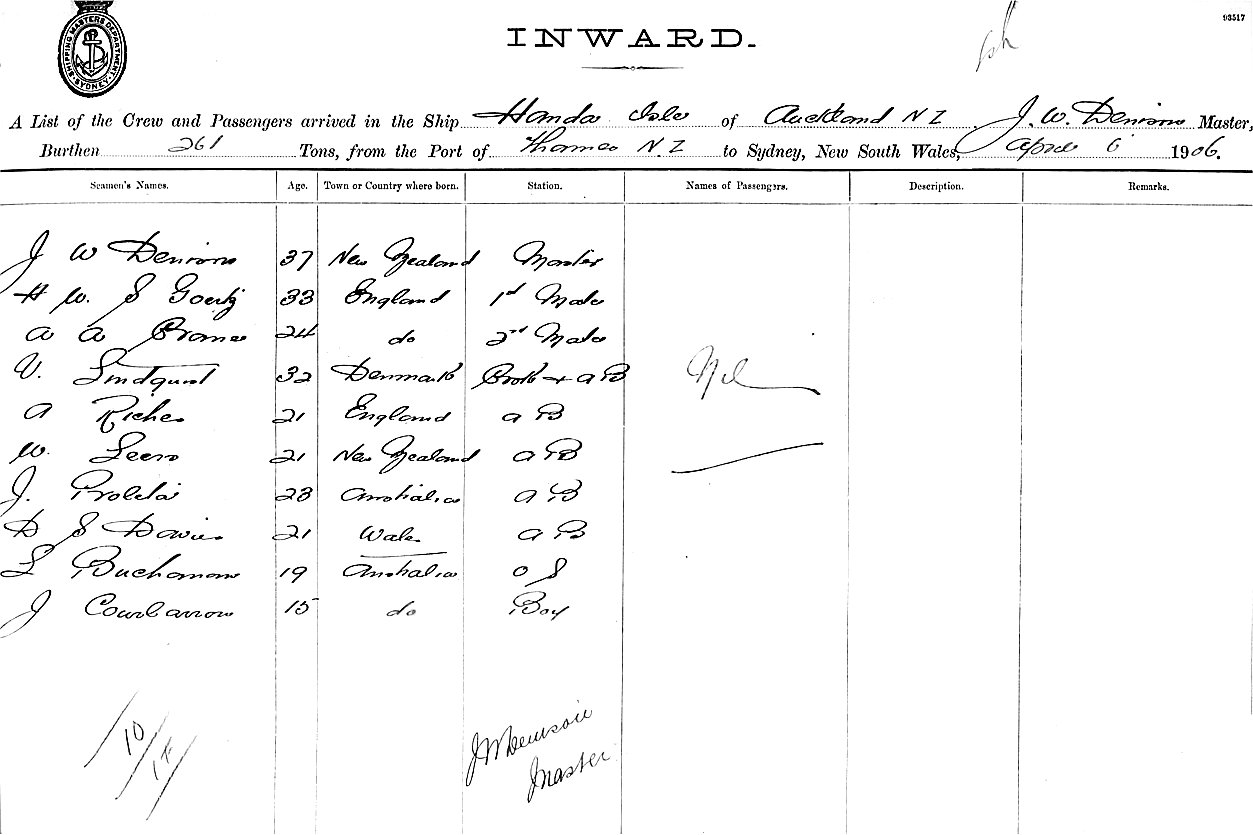 SHIPPING MASTERS DEPARTMENT SYDNEY
93517
INWARD.
A List of the Crew and Passengers arrived in the Ship Handa Isle of Auckland NZ J. W. Denison Master,
Burthen 261 Tons, from the Port of Thames N.Z to Sydney, New South Wales, April 6 1906.
Seamen's Names. Age. Town or Country where born. Station. Names of Passengers. Description. Remarks.
J W Denison 37 New Zealand Master
H W. S Goertz 33 England 1st Mate
A A 24 do 2nd Mate
V. Lindquist 32 Denmark Cook + AB
A Riche 21 England AB
W. Leers 21 New Zealand AB
J. 23 Australia AB
D S Davies 21 Wales AB
L Buchanan 19 Australia OS
J 15 do Boy
Nil
10
JW Denison
Master